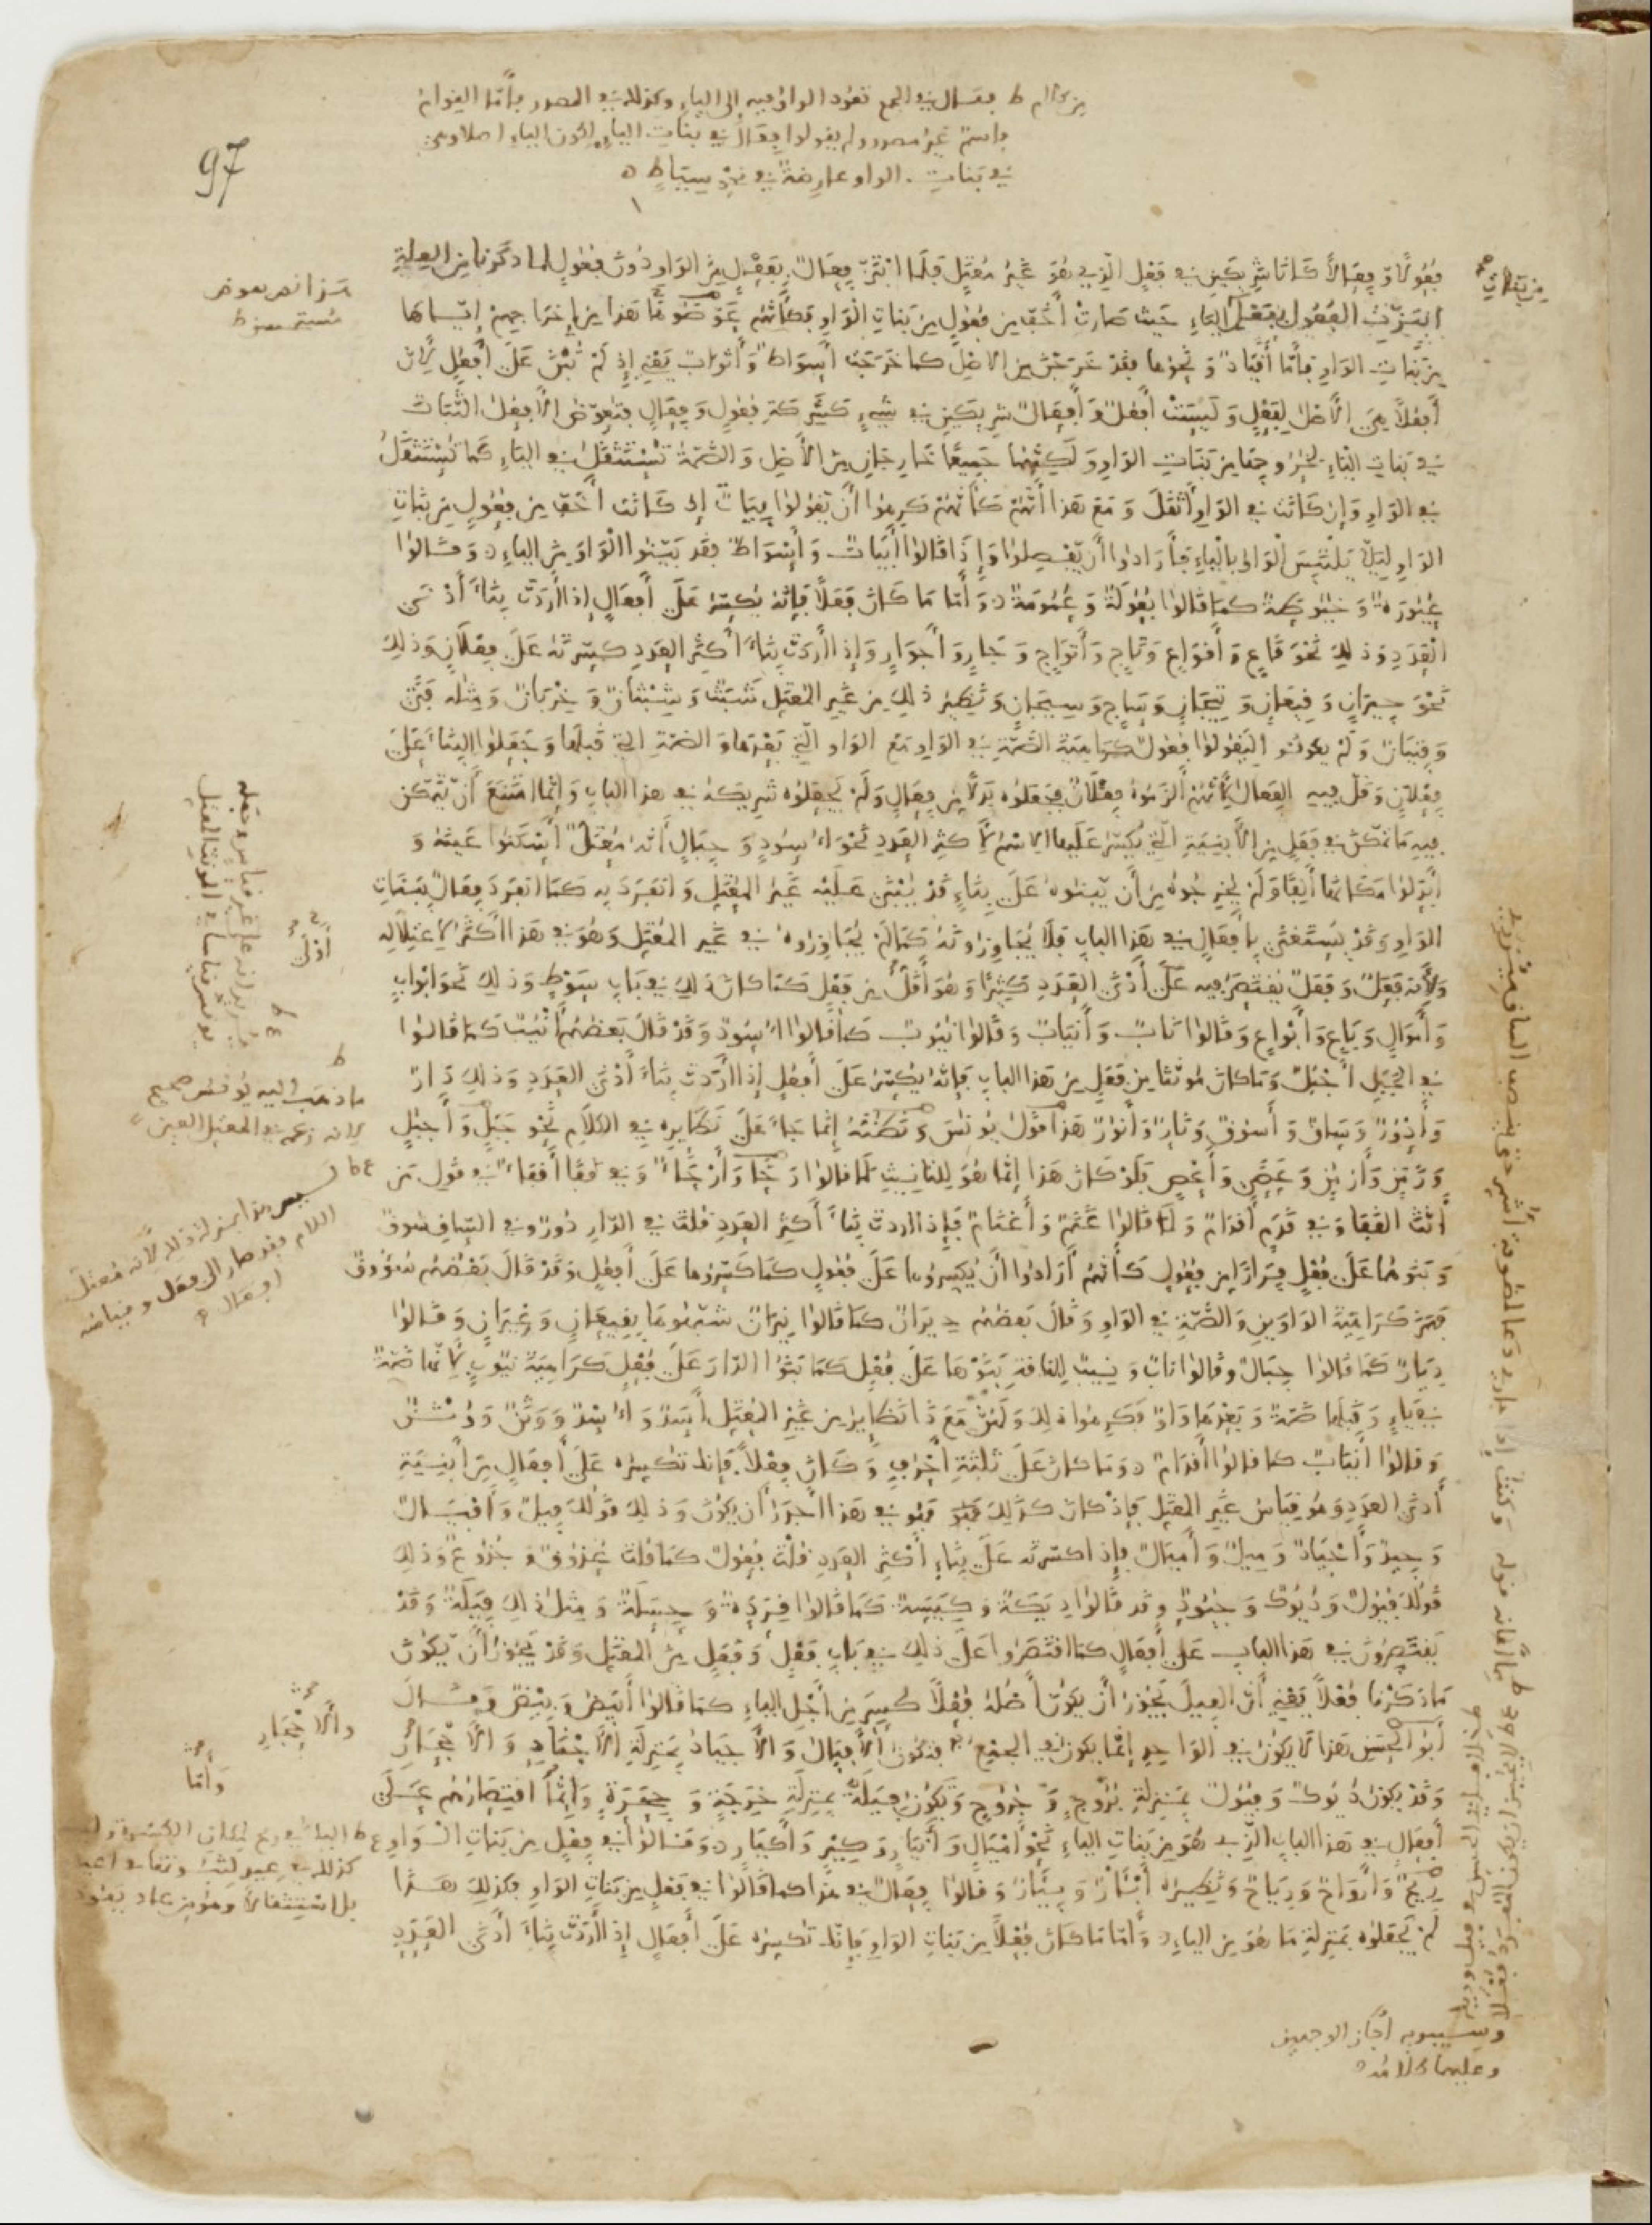 97
فُعُولًا وَفِعَالًا كَانَا شَرِيكَيْنِ فِي فَعْلٍ الَّذِي هُوَ غَيْرُ مُعْتَلٍّ فَلَمَّا ابْتَزَّ فِعَالٌ بِفَعْلٍ مِنَ الوَاوِ دُونَ فُعُولٍ لما ذكرنا من العِلَّةِ
ابْتَزَّتِ الفُعُولُ بِفَعْلٍ اليَاءِ حَيْثُ صَارَتْ أَخَفَّ مِن فُعُولٍ مِنْ بَنَاتِ الْوَاوِ فَكَأَنَّهُمْ عَوَّضُوا هَذَا مِنْ إِخْرَاجِهِمْ إِيَّاهَا
مِنْ بَنَاتِ الوَاوِ فأَمَّا أَقْيَادٌ وَنَحْوُهَا فَقَدْ خَرَجْنَ مِنَ الاصْلِ كما خَرَجَتْ أَسْوَاطٌ وَأَثْوَابٌ يَعْنِي إِذ لَمْ تُبْنَ عَلَى أَفْعُلٍ لِأَنَّ
أَفْعُلًا هِيَ الأَصْلُ لِفَعْلٍ وَلَيْسَتْ أَفْعُلٌ وَأَفْعَالٌ شَرِيكَيْنِ فِي شَيْءٍ كَشَرِكَةِ فُعُولٍ وَفِعَالٍ فَتُعَوِّضَ الأَفْعُلُ الثَّبَاتَ
فِي بَنَاتِ الْيَاءِ لِخُرُوجِهَا مِنْ بَنَاتِ الوَاوِ وَلَكِنَّهُمَا جَمِيعًا خَارِجَانِ مِنَ الأَصْلِ وَالضَّمَّةُ تُسْتَثْقَلُ فِي اليَاءِ كَمَا تُسْتَثْقَلُ
فِي الوَاوِ وَإِنْ كَانَتْ فِي الوَاوِ أَثْقَلَ وَمَعَ هَذَا أَنَّهُمْ كَأَنَّهُمْ كَرِهُوا أَنْ يَقُولُوا بِيَاتٌ إِذ كَانَتْ أَخَفَّ مِن فُعُولٍ مِنْ بَنَاتِ
الوَاوِ لِئَلَّا يَلْتَبِسَ الْوَاوُ بِالْيَاءِ فَأَرَادُوا أَنْ يَفْصِلُوا وَإِذَا قَالُوا أَبْيَاتٌ وَأَسْوَاطٌ فَقَدْ بَيَّنُوا الْوَاوَ مِنَ اليَاءِ وَقَالُوا
عُيُورَةٌ وَخُيُوطَةٌ كَمَا قَالُوا بُعُولَةٌ وَعُمُومَةٌ وَأَمَّا مَا كَانَ فَعَلًا فَإِنَّهُ يُكَسَّرُ عَلَى أَفْعَالٍ إِذَا أَرَدْتَ بِنَاءَ أَدْنَى
الْعَدَدِ وَذَلِكَ نَحْوَ قَاعٍ وَأَقْوَاعٍ وَتَاجٍ وَأَتْوَاجٍ وَجَارٍ وَأَجْوَارٍ وَإِذَا أَرَدْتَ بِنَاءَ أَكْثَرِ العَدَدِ كَسَّرْتَهُ عَلَى فِعْلَانٍ وَذلِكَ
نَحْوَ جِيرَانٍ وَقِيعَانٍ وَتِيجَانٍ وَسَاجٍ وَسِيجَانٍ وَنَظِيرُ ذَلِكَ مِن غَيْرِ المُعْتَلِّ شَبَثٌ وَشِبْثَانٌ وَخِرْبَانٌ وَمِثْلُه فَتًى
وَفِتْيَانٌ وَلَمْ يكونُوا لِيَقُولُوا فُعُولٌ كَرَاهِيَةَ الضَّمَّةِ فِي الوَاوِ مَعَ الوَاوِ الَّتِي بَعْدَهَا وَالضَّمَّةِ الَّتِي قَبْلَهَا وَجَعَلُوا البِنَاءَ عَلَى
فِعْلَانٍ وَقَلَّ فِيهِ الفِعَالُ لِأَنَّهُمْ أَلْزَمُوهُ فِعْلَانٌ فَجَعَلُوهُ بَدَلًا مِن فِعَالٍ وَلَمْ يَجْعَلُوهُ شَرِيكَهُ فِي هَذَا البَابِ وَإِنَّمَا امْتَنَعَ أَنْ يَتَمَكَّنَ
فِيهِ مَا تَمَكَّنَ فِي فَعَلٍ مِنَ الأَبْنِيَةِ الَّتِي يُكَسَّرُ عَلَيهَا الاسْمُ لِأَكْثَرِ العَدَدِ نَحْوَ أُسُودٍ وَجِبَالٍ أَنَّهُ مُعْتَلٌّ أَسْكَنُوا عَيْنَهُ وَ
أَبْدَلُوا مَكَانَهَا أَلِفًا وَلَمْ يُخْرِجُوهُ مِنْ أَن يَبْنُوهُ عَلَى بِنَاءٍ قَدْ بُنِيَ عَلَيْهِ غَيْرُ المُعْتَلِّ وَانْفَرَدَ بِهِ كَمَا انْفَرَدَ فِعَالٌ بِبَنَاتِ
الوَاوِ وَقَدْ يُسْتَغْنَى بِأَفْعَالٍ فِي هَذَا البَابِ فَلَا يُجَاوِزُونَهُ كَمَا لَمْ يُجَاوِزُوهُ فِي غَيْرِ المُعْتَلِّ وَهُوَ فِي هَذَا أَكْثَرُ لِاعْتِلَالِهِ
وَلِأَنَّهُ فَعَلٌ وَفَعَلٌ يُقْتَصَرُ فِيه عَلَى أَدْنَى العَدَدِ كَثِيرًا وَهُوَ أَقَلُّ مِن فَعْلٍ كَمَا كَانَ ذلِكَ فِي بَابِ سَوْطٍ وَذَلِكَ نَحْوَ أَبْوَابٍ
وَأَمْوَالٍ وَبَاعٍ وَأَبْوَاعٍ وَقَالُوا نَابٌ وَأَنْيَابٌ وَقَالُوا نُيُوبٌ كَمَا قَالُوا أُسُودٌ وَقَدْ قَالَ بَعْضُهُمْ أَنْيُبٌ كَمَا قَالُوا
فِي الجَبَلِ أَجْبُلٌ وَمَا كَانَ مُوَنَّثًا مِن فَعَلٍ مِنْ هَذَا البابِ فَإِنَّهُ يُكَسَّرُ عَلَى أَفْعُلٍ إِذَا أَرَدْتَ بِنَاءَ أَدْنَى العَدَدِ وَذَلِكَ دَارٌ
وَأَدْوُرٌ وَسَاقٌ وَأَسْوُقٌ وَنَارٌ وَأَنْوُرٌ هَذَا قَوْلُ يُونُسَ وَنَظُنُّهُ إِنَّمَا جَاءَ عَلَى نَظَايِرِهِ فِي الكَلَامِ نَحْوَ جَبَلٍ وَأَجْبُلٍ
وَزَمَنٍ وَأَزْمُنٍ وَعَصًى وَأَعْصٍ فَلَوْ كَانَ هَذَا إِنَّمَا هُوَ لِلتَانِيثِ لَمَا قَالُوا رَحًى وَأَرْحَاءٌ وَفِي قَفًا أَقْفَاءٌ فِي قَوْلِ مَن
أَنَّثَ القَفَا وَفِي قَدَمٍ أَقْدَامٌ وَلَمَا قَالُوا غَنَمٌ وَأَغْنَامٌ فَإِذَا ارَدتَ بِنَاءَ أَكْثَرِ العَدَدِ قُلْتَ فِي الدَّارِ دُورٌ وَفِي السَّاقِ سُوقٌ
وَبَنَوْهُمَا عَلَى فُعْلٍ فِرَارًا مِن فُعُولٍ كَأَنَّهُمْ أَرَادُوا أَنْ يُكَسِّرُوهَا عَلَى فُعُولٍ كَمَا كَسَّرُوهَا عَلَى أَفْعُلٍ وَقَدْ قَالَ بَعْضُهُم سُؤُوقٌ
فَهَمَزَ كَرَاهِيَةَ الوَاوَيْنِ وَالضَّمَّةِ فِي الوَاوِ وَقَالَ بَعْضُهُم دِيرَانٌ كَمَا قَالُوا نِيرَانٌ شَبَّهُوهَا بِقِيعَانٍ وَغِيرَانٍ وَقَالُوا
دِيَارٌ كَمَا قَالُوا جِبَالٌ وقالُوا نَابٌ وَنِيبٌ لِلنَّاقَةِ بَنَوْهَا عَلَى فُعْلٍ كَمَا بَنَوُا الدَّارَ عَلَى فُعْلٍ كَرَاهِيَةَ نُيُوبٍ لِأَنَّهَا ضَمَّةٌ
فِي يَاءٍ وَقَبْلَهَا ضَمَّةٌ وَبَعْدَهَا وَاوٌ فَكَرِهُوا ذلِكَ وَلَهُنَّ مَعَ ذَا نَظَايِرُ مِن غَيْرِ المُعْتَلِّ أَسَدٌ وَأُسْدٌ وَوَثَنٌ وَوُثْنٌ
وَقَالُوا أَنْيَابٌ كَمَا قَالُوا أَقْدَامٌ وَمَا كَانَ عَلَى ثَلَثَةِ أَحْرُفٍ وَكَانَ فِعْلًا فَإِنَّكَ تُكَسِّرُهُ عَلَى أَفْعَالٍ مِنْ أَبْنِيَةِ
أَدْنَى العَدَدِ وَهُوَ قِيَاسُ غَيْرِ المُعْتَلِّ فَإِذْ كَانَ كَذَلِكَ فَهُوَ فِي هَذَا أَجْدَرُ أَن يَكُونَ وَذلِكَ قَوْلُكَ فِيلٌ وَأَفْيَالٌ
وَجِيدٌ وَأَجْيَادٌ وَمِيلٌ وَأَمْيَالٌ فإِذَا كسَّرْتَه عَلَى بِنَاءِ أَكْثَرِ العَدَدِ قُلْتَ فُعُولٌ كَمَا قُلْتَ عُذُوقٌ وَجُذُوعٌ وَذَلِكَ
قَوْلُكَ فُيُولٌ وَدُيُوكٌ وَجُيُودٌ وَقَد قَالُوا دِيَكَةٌ وَكِيَسَةٌ كَمَا قَالُوا قِرَدَةٌ وَحِسَلَةٌ وَمِثْلُ ذَلِكَ فِيَلَةٌ وَقَدْ
يَقْتَصِرُونَ فِي هَذَا البابِ عَلَى أَفْعَالٍ كَمَا اقْتَصَرُوا عَلَى ذَلِكَ فِي بَابِ فَعْلٍ وَفَعَلٍ مِنَ المُعْتَلِّ وَقَدْ يَجُوزُ أَنْ يَكُونَ
مَا ذَكَرْنَا فُعْلًا يَعْنِي أَنَّ الفِيلَ يَجُوزُ أَنْ يَكُونَ أَصْلُهُ فُعْلًا كُسِرَ مِن أَجْلِ اليَاءِ كَمَا قَالُوا أَبْيَضُ وَبِيضٌ وَقَالَ
أَبُو الحَسَنِ هَذَا لَا يَكُونُ فِي الوَاحِدِ إِنَّمَا يكُونُ فِي الجَمْعِ فتكُونُ الأَفْيَالُ وَالأَجْيَادُ بِمَنْزِلَةِ الأَجْنَادِ وَالأَجْحَارِ
وَقَدْ يَكُونُ دُيُوكٌ وَفُيُولٌ بِمَنْزِلَةِ بُرُوجٍ وَخُرُوجٍ وَيَكُونُ فِيَلَةٌ بِمَنْزِلَةِ خِرَجَةٍ وَجِحَرَةٍ وَإِنَّمَا اقْتِصَارُهُم عَلَى
أَفْعَالٍ فِي هَذَا البَابِ الَّذِي هُوَ مِنْ بَنَاتِ اليَاءِ نَحْوَ أَمْيَالٍ وَأَنْيَارٍ وَكِيرٍ وَأَكْيَارٍ وَقَالُوا فِي فِعْلٍ مِنْ بَنَاتِ الْوَاوِ
رِيحٌ وَأَرْوَاحٌ وَرِيَاحٌ وَنَظِيرُهُ أَبْآرٌ وَبِئَارٌ وَقَالُوا فِعَالٌ فِي هَذَا كما قَالُوا فِي فَعْلٍ مِنْ بَنَاتِ الوَاوِ فكذلِكَ هَذَا
لَمْ يَجْعَلُوهُ بِمَنْزِلَةِ مَا هُوَ مِنَ اليَاءِ وَأَمَّا مَا كَانَ فُعْلًا مِنْ بَنَاتِ الوَاوِ فَإِنَّكَ تُكَسِّرُهُ عَلَى أَفْعَالٍ إِذَا أَرَدْتَ بِنَاءَ أَدْنَى العَدَدِ
وسيبويه أجاز الوجهين
وعليهما كلامه